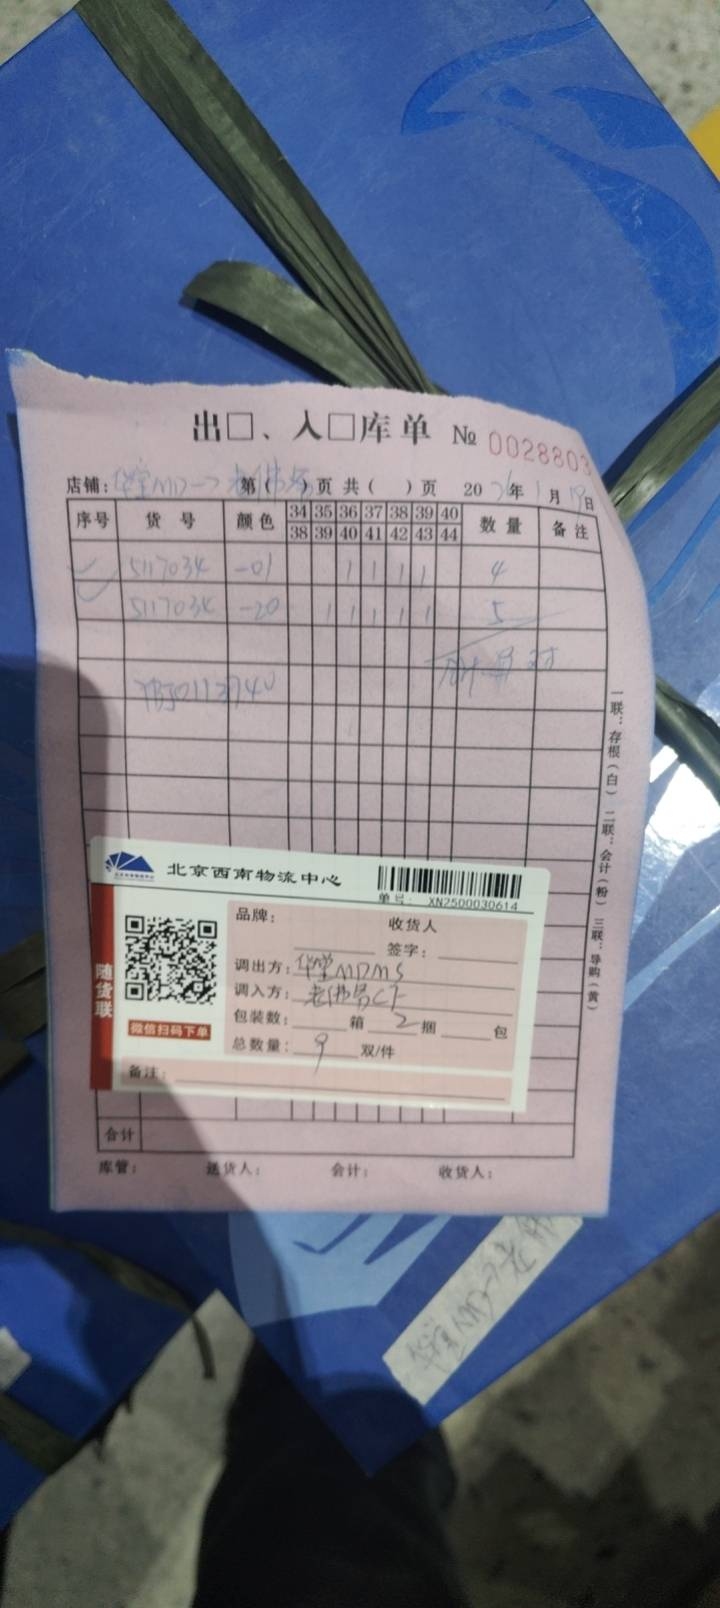 出□、入□库单 № 0028803
店铺:华堂MD→老佛爷 第( )页 共( )页 20 年1月19日
序号 货号 颜色 34 35 36 37 38 39 40 数量 备注
38 39 40 41 42 43 44
5117034 -01 1 1 1 1 4
5117034 -20 1 1 1 1 1 5
一联:存根(白) 二联:会计(粉) 三联:导购(黄)
北京西南物流中心
单号: XN2500030614
随货联
微信扫码下单
品牌: 收货人
签字:
调出方:华堂MDMS
调入方:老佛爷CF
包装数: 箱 2 捆 包
总数量: 9 双/件
备注:
合计
库管: 送货人: 会计: 收货人: